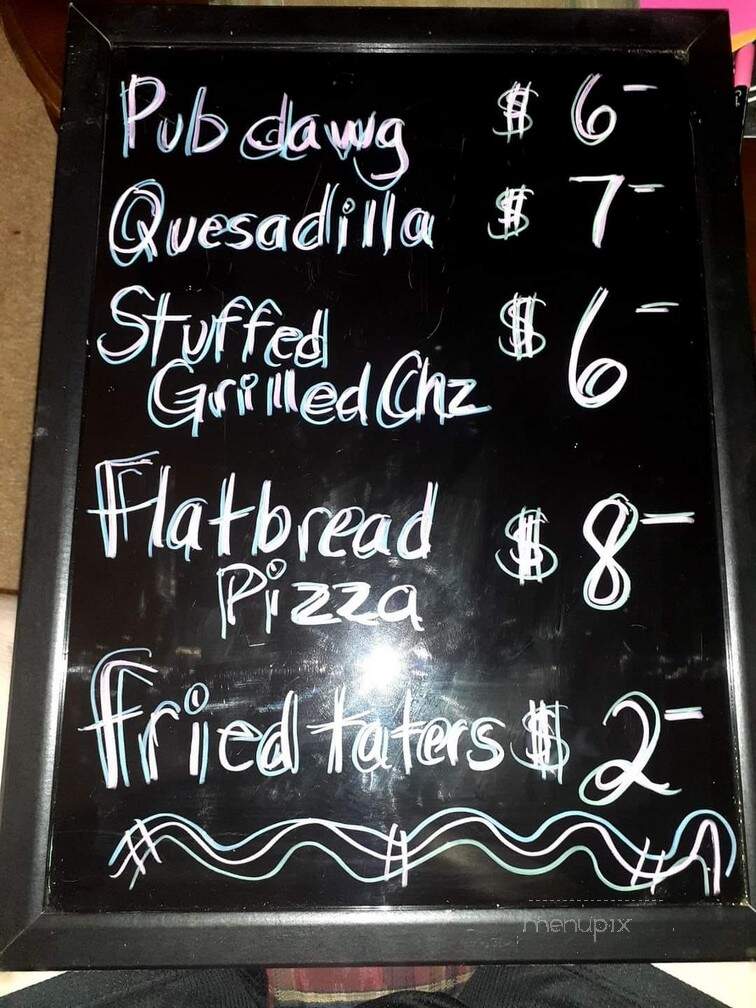 Pub dawg $ 6-
Quesadilla $ 7-
Stuffed $ 6-
Grilled Chz
Flatbread $ 8-
Pizza
Fried taters $ 2-
menupix